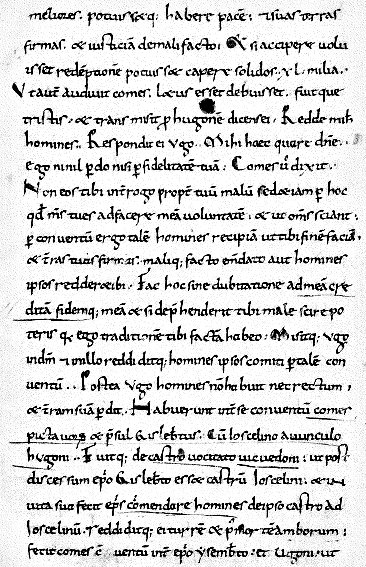 meliores. potuissetq; habere pacē. et suas terras
firmas. & iusticiā de malifacto. Et si accipere volu
isset redēptione potuisset & capere solidos. xl. milia.
Vt autē audivit comes. lætus esset debuisset. fuitque
tristis. & transmisit p hugonē dicens ei. Redde mihi
homines. Respondit ei Vgo. Mihi haec quare dn̄e.
ego nihil pdo nisi p fidelitatē tuā. Comes ū dixit.
Non eos tibi int̄rogo propt̄ tuū malū sed etiam p hoc
qd̄ m̄s tu es ad facere meā voluntatē. & ut om̄s sciant.
p conventū ergo talē homines recipiā ut tibi finē faciā
& t̄ras tuas firmas. maliq; facto en̄dato aut homines
ipsos redderæ tibi. Fac hoc sine dubitatione ad mea cre
dita fidemq; meā & si dep̄henderit tibi male scire po
teris q ego traditionē tibi factā habeo. Misitq; Vgo
in dm̄ et in illo reddiditq; homines ipsos comiti p talē con
ventū. Postea Vgo homines n̄ habuit nec rectum.
& t̄ram suā pdit. Habuerunt int̄ se conventū comes
pictavos & p̄sul Gislebtus. Cū Ioscelino avunculo
hugoni. Fuitq; de castro vocitato vicvedom. ut post
discessum ep̄o Gislebto esset castrū Ioscelini. & in
vita sua fecit ep̄s cōmendare homines de ipso castro ad
Ioscelinū. et reddiditq; ei turrē & p mortē amborum.
fecit comes c̄ventū int̄ ep̄o Ysembto. et Vgoni. ut